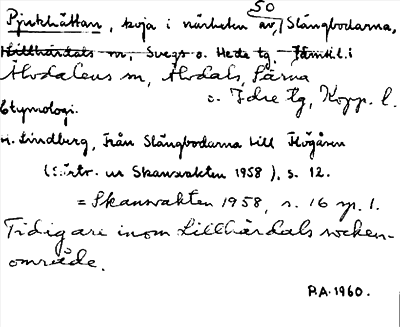 50
Pjukhättan, koja i närheten av Slängbodarna,
Lillhärdals sn, Svegs o. Hede tg, Jämtl. l.
Älvdalens sn, Älvdals, Särna
o. Idre tg, Kopp. l.
Etymologi.
H. Lindberg, Från Slängbodarna till Högåren
(Särtr. ur Skansvakten 1958), s. 12.
= Skansvakten 1958, s. 16 sp. 1.
Tidigare inom Lillhärdals socken-
område.
P.A. 1960.